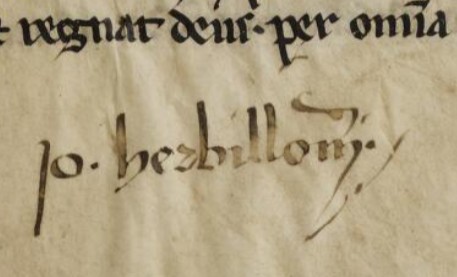 t regnat deus. per om̄a
jo. herbillom̄.